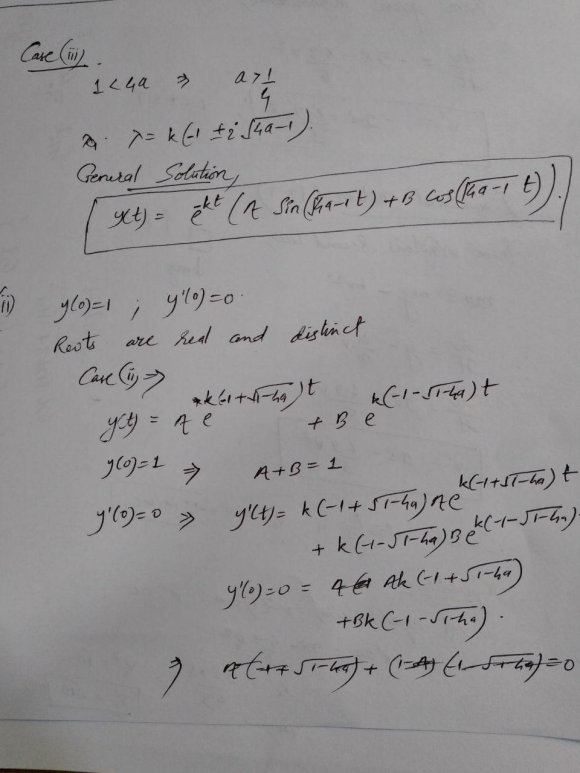 Case (iii).
1 < 4a ⇒ a > 1/4
λ = k(-1 ± i √4a-1).
General Solution,
y(t) = e^-kt (A Sin(√4a-1 t) + B Cos(√4a-1 t)).
ii) y(0)=1 ; y'(0)=0.
Roots are real and distinct
Case (ii) ⇒
y(t) = A e^k(-1+√1-4a)t + B e^k(-1-√1-4a)t
y(0)=1 ⇒ A+B = 1
y'(0)=0 ⇒ y'(t) = k(-1+√1-4a)Ae^k(-1+√1-4a)t
+ k(-1-√1-4a)Be^k(-1-√1-4a)
y'(0)=0 = Ak(-1+√1-4a)
+Bk(-1-√1-4a).
⇒ A(-1+√1-4a) + (1-A)(-1-√1-4a)=0